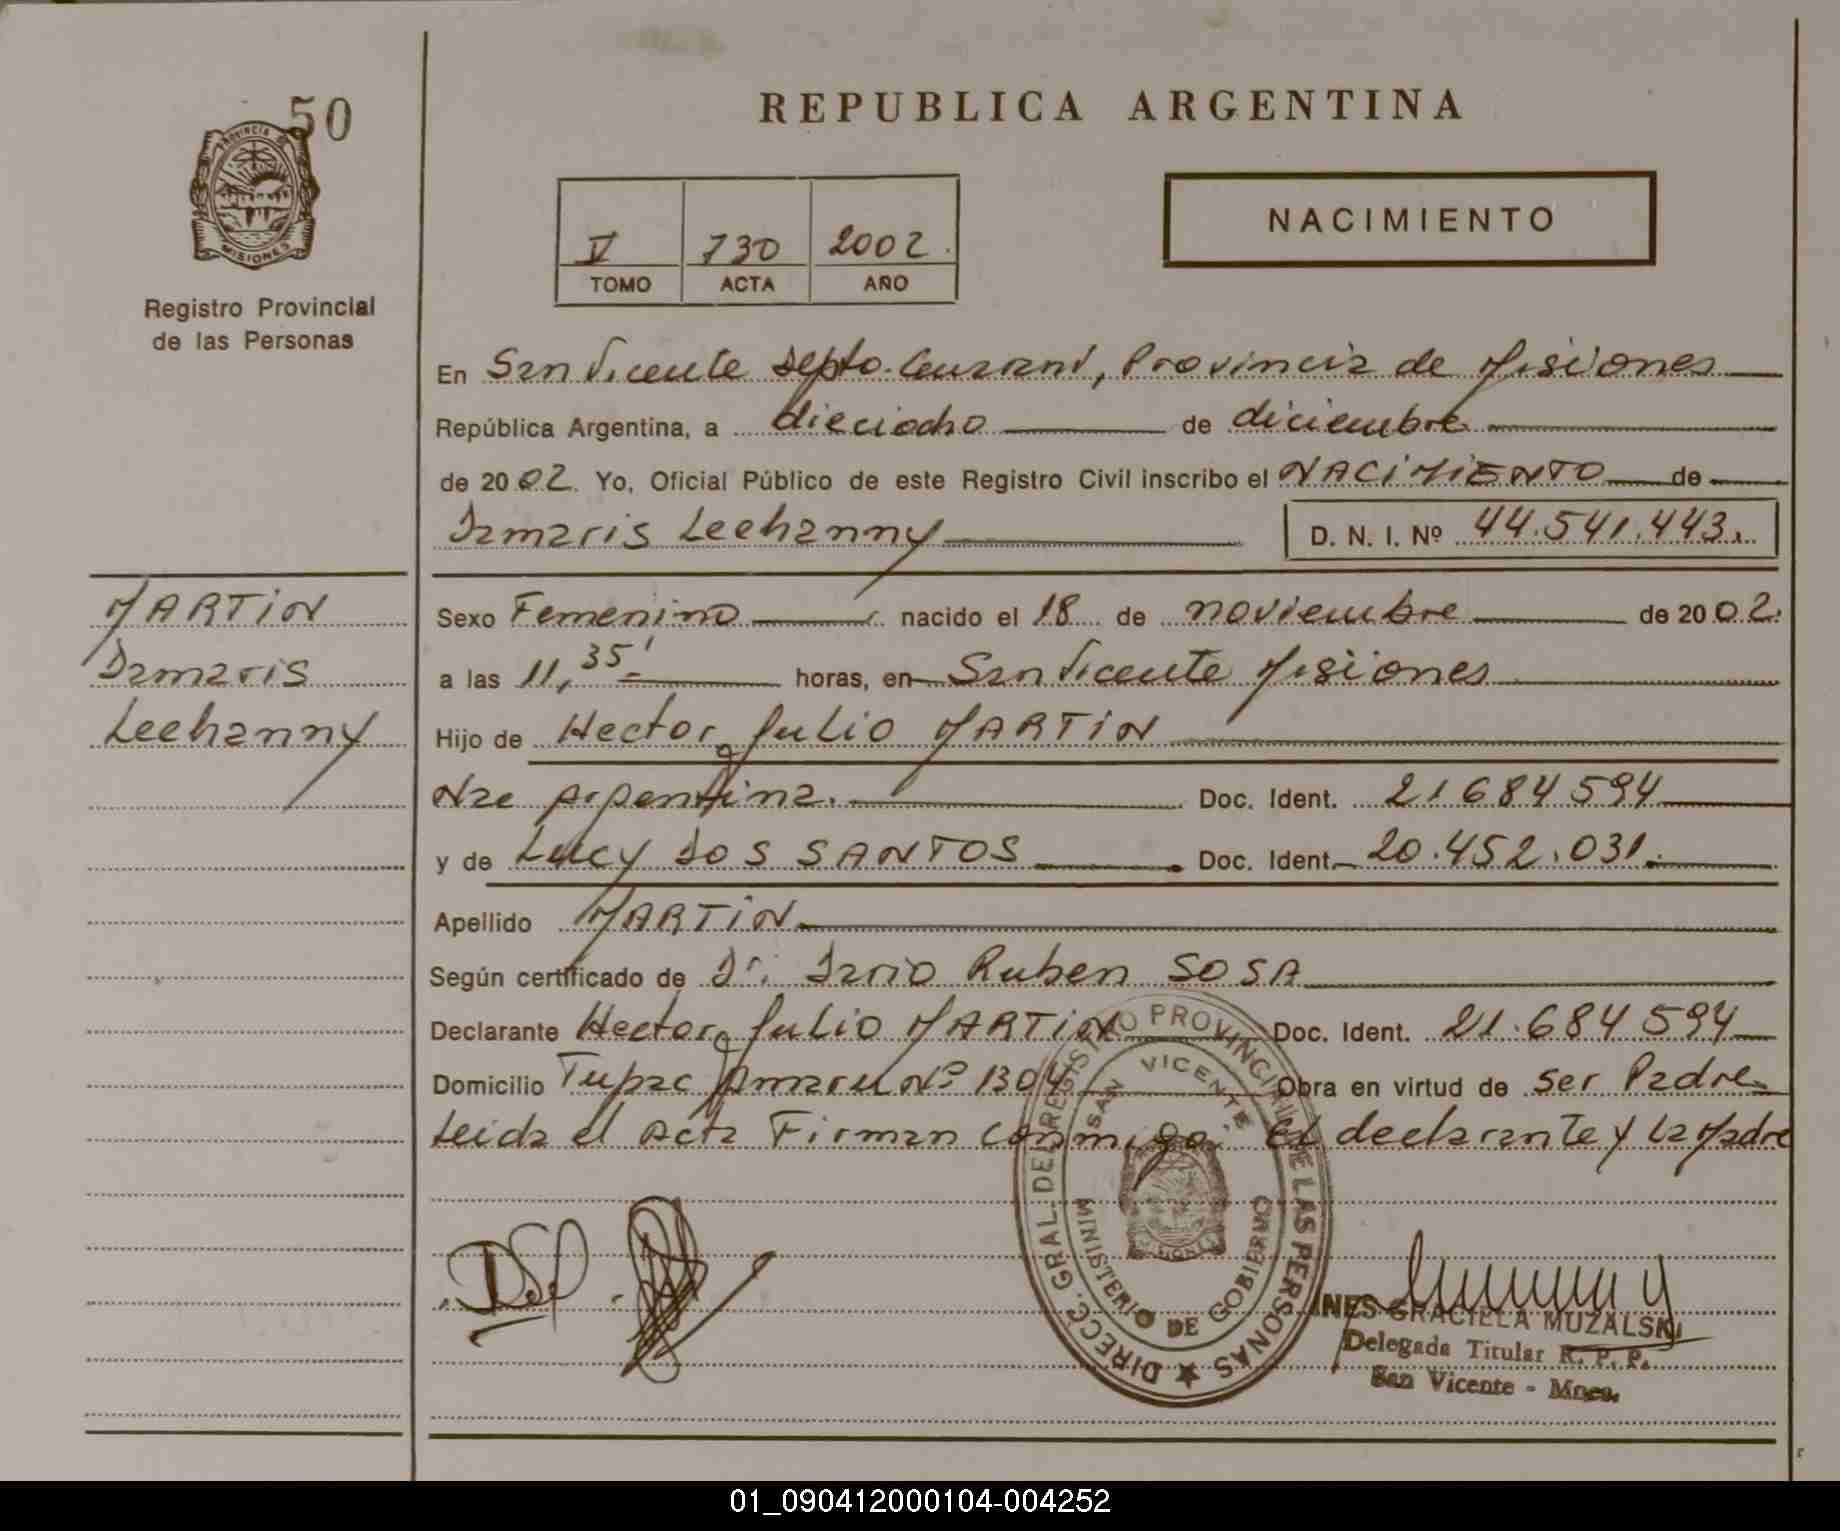 50
PROVINCIA DE
MISIONES
Registro Provincial
de las Personas
REPUBLICA ARGENTINA
V 730 2002
TOMO ACTA AÑO
NACIMIENTO
En San Vicente Depto. Guaraní, Provincia de Misiones
República Argentina, a dieciocho de diciembre
de 2002. Yo, Oficial Público de este Registro Civil inscribo el NACIMIENTO de
Damaris Leehanny
D. N. I. Nº 44.541.443.
MARTIN
Damaris
Leehanny
Sexo Femenino nacido el 18 de noviembre de 2002.
a las 11,35' horas, en San Vicente Misiones
Hijo de Hector Julio MARTIN
Nac Argentina. Doc. Ident. 21684594
y de Lucy DOS SANTOS Doc. Ident. 20.452.031.
Apellido MARTIN
Según certificado de Dr. Dario Ruben SOSA
Declarante Hector Julio MARTIN Doc. Ident. 21.684594
Domicilio Tupac Amaru Nº 1304 Obra en virtud de ser Padre
Leida el Acta Firman conmigo, el declarante y la Madre
DIRECC. GRAL. DEL REGISTRO PROVINCIAL DE LAS PERSONAS
SAN VICENTE
MINISTERIO DE GOBIERNO
INES GRACIELA MUZALSKI
Delegada Titular R. P. P.
San Vicente - Mnes.
01_090412000104-004252